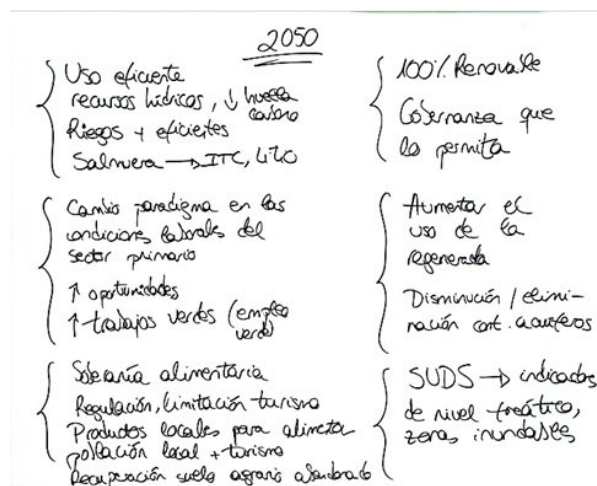 2050
Uso eficiente
recursos hídricos, ↓ huella
carbono
Riegos + eficientes
Salmuera → ITC,
Cambio paradigma en las
condiciones laborales del
sector primario
↑ oportunidades
↑ trabajos verdes (empleo
verde)
Soberanía alimentaria
Regulación, limitación turismo
Productos locales para alimentar
población local + turismo
Recuperación suelo agrario abandonado
100% Renovable
Gobernanza que
lo permita
Aumentar el
uso de la
regenerada
Disminución / elimi-
nación cont. acuíferos
SUDS → indicados
de nivel freático,
zonas inundables